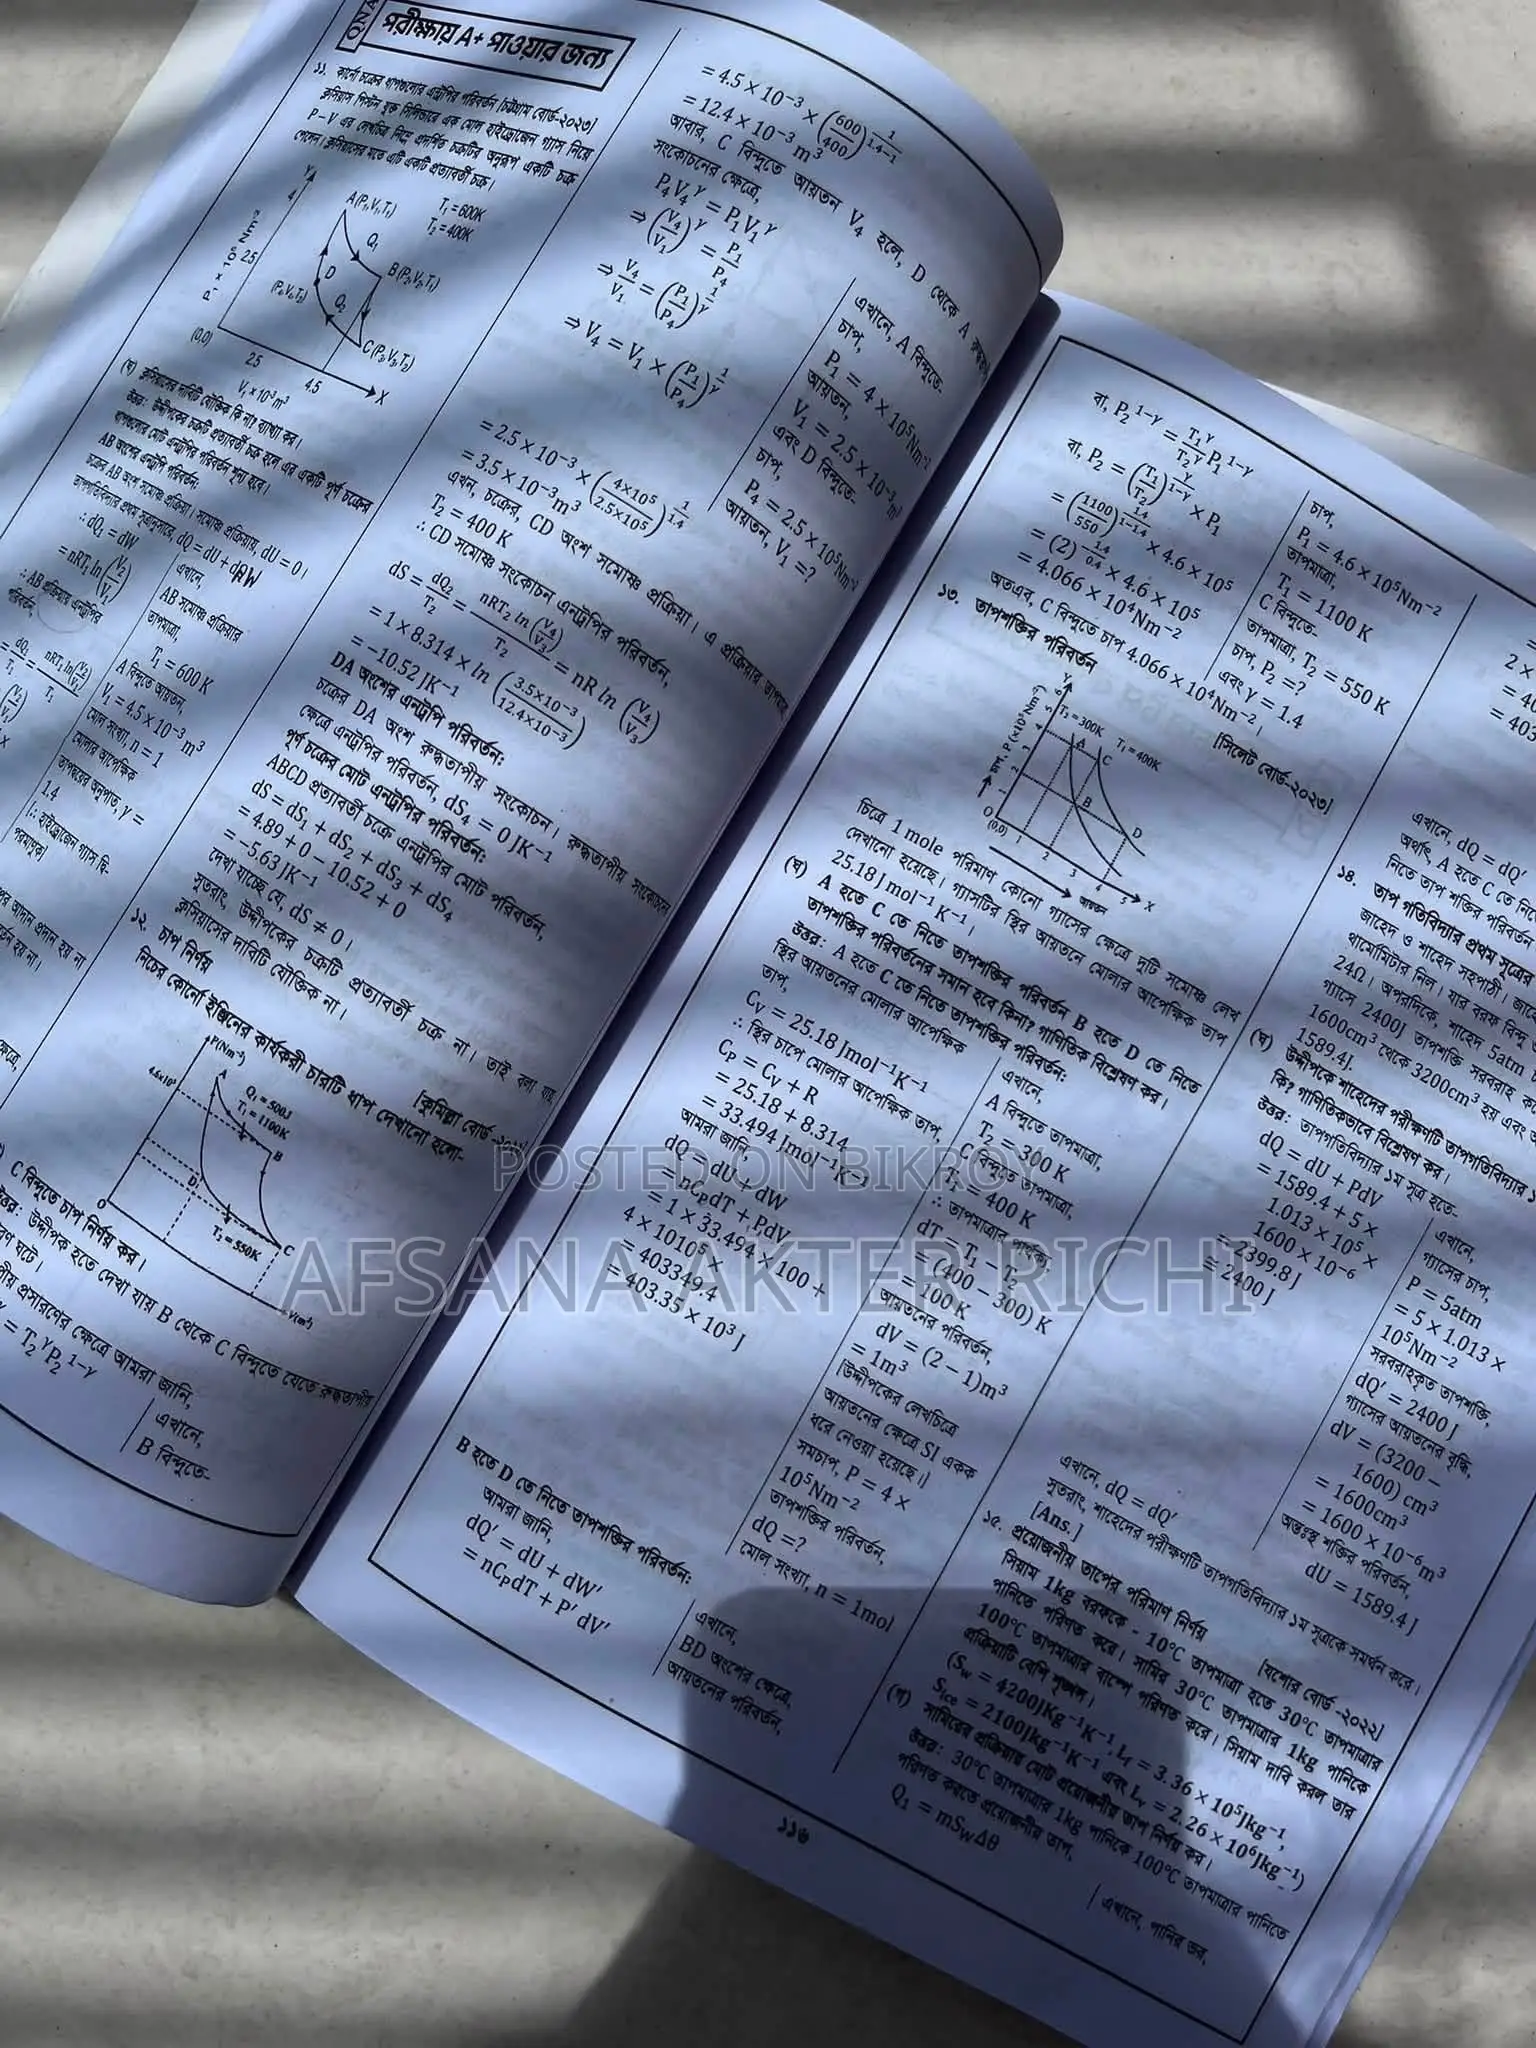 QNA
পরীক্ষায় A+ পাওয়ার জন্য
১১. কার্নো চক্রের ধাপগুলোর এন্ট্রপির পরিবর্তন [চট্টগ্রাম বোর্ড-২০২৩]
ক্লসিয়াস পিস্টন যুক্ত সিলিন্ডারে এক মোল হাইড্রোজেন গ্যাস নিয়ে
P – V এর লেখচিত্র নিম্নে প্রদর্শিত চক্রটির অনুরূপ একটি চক্র
পেলেন। ক্লসিয়াসের মতে এটি একটি প্রত্যাবর্তী চক্র।
Y
4
A (P₁,V₁,T₁)
T₁ = 600K
T₂ = 400K
Q₁
B (P₂,V₂,T₁)
2.5
D
(P₄,V₄,T₂)
Q₂
C (P₃,V₃,T₂)
(0,0)
2.5
4.5
X
V, x 10⁻³ m³
(ঘ) ক্লসিয়াসের দাবিটি যৌক্তিক কি না? ব্যাখ্যা কর।
উত্তর: উদ্দীপকের চক্রটি প্রত্যাবর্তী চক্র হলে এর একটি পূর্ণ চক্রের
ধাপগুলোর মোট এনট্রপির পরিবর্তন শূন্য হবে।
AB অংশের এনট্রপি পরিবর্তন:
চক্রের AB অংশ সমোষ্ণ প্রক্রিয়া। সমোষ্ণ প্রক্রিয়ায়, dU = 0।
তাপগতিবিদ্যার প্রথম সূত্রানুসারে, dQ = dU + dW
∴ dQ₁ = dW
= nRT₁ ln (V₂/V₁)
∴ AB প্রক্রিয়ায় এনট্রপির
পরিবর্তন,
= dQ₁/T₁ = nRT₁ ln(V₂/V₁)/T₁
এখানে,
AB সমোষ্ণ প্রক্রিয়ার
তাপমাত্রা,
T₁ = 600 K
A বিন্দুতে আয়তন,
V₁ = 4.5 × 10⁻³ m³
মোল সংখ্যা, n = 1
মোলার আপেক্ষিক
তাপদ্বয়ের অনুপাত, γ =
1.4
[∵ হাইড্রোজেন গ্যাস দ্বি-
পরমাণুক]
= 4.5 × 10⁻³ × (600/400)^(1/(1.4−1))
= 12.4 × 10⁻³ m³
আবার, C বিন্দুতে আয়তন V₄ হলে, D থেকে A রুদ্ধতাপীয়
সংকোচনের ক্ষেত্রে,
P₄V₄^γ = P₁V₁^γ
⇒ (V₄/V₁)^γ = P₁/P₄
⇒ V₄/V₁ = (P₁/P₄)^(1/γ)
⇒ V₄ = V₁ × (P₁/P₄)^(1/γ)
এখানে, A বিন্দুতে-
চাপ,
P₁ = 4 × 10⁵Nm⁻²
আয়তন,
V₁ = 2.5 × 10⁻³m³
এবং D বিন্দুতে-
চাপ,
P₄ = 2.5 × 10⁵Nm⁻²
আয়তন, V₁ =?
= 2.5 × 10⁻³ × (4×10⁵/2.5×10⁵)^(1/1.4)
= 3.5 × 10⁻³m³
এখন, চক্রের, CD অংশ সমোষ্ণ প্রক্রিয়া। এ প্রক্রিয়ায় তাপমাত্রা
T₂ = 400 K
∴ CD সমোষ্ণ সংকোচন এনট্রপির পরিবর্তন,
dS = dQ₂/T₂ = nRT₂ ln(V₄/V₃)/T₂ = nR ln (V₄/V₃)
= 1 × 8.314 × ln (3.5×10⁻³/12.4×10⁻³)
= −10.52 JK⁻¹
DA অংশের এনট্রপি পরিবর্তন:
চক্রের DA অংশ রুদ্ধতাপীয় সংকোচন। রুদ্ধতাপীয় সংকোচনে
ক্ষেত্রে এনট্রপির পরিবর্তন, dS₄ = 0 JK⁻¹
পূর্ণ চক্রের মোট এনট্রপির পরিবর্তন:
ABCD প্রত্যাবর্তী চক্রে এনট্রপির মোট পরিবর্তন,
dS = dS₁ + dS₂ + dS₃ + dS₄
= 4.89 + 0 − 10.52 + 0
= −5.63 JK⁻¹
দেখা যাচ্ছে যে, dS ≠ 0।
সুতরাং, উদ্দীপকের চক্রটি প্রত্যাবর্তী চক্র না। তাই বলা যায়
ক্লসিয়াসের দাবিটি যৌক্তিক না।
১২. চাপ নির্ণয়
নিচের কোনো ইঞ্জিনের কার্যকরী চারটি ধাপ দেখানো হলো-
P(Nm⁻²)
4.6x10⁵
A
Q₁ = 500J
T₁ = 1100K
B
D
T₂ = 550K
C
O
V(m³)
C বিন্দুতে চাপ নির্ণয় কর।
উত্তর: উদ্দীপক হতে দেখা যায় B থেকে C বিন্দুতে যেতে রুদ্ধতাপীয়
প্রসারণের ক্ষেত্রে আমরা জানি,
= T₂^γ P₂^(1−γ)
এখানে,
B বিন্দুতে-
বা, P₂^(1−γ) = T₁^γ/T₂^γ P₁^(1−γ)
বা, P₂ = (T₁/T₂)^(γ/(1−γ)) × P₁
= (1100/550)^(1.4/(1−1.4)) × 4.6 × 10⁵
= (2)^(−1.4/0.4) × 4.6 × 10⁵
= 4.066 × 10⁴Nm⁻²
অতএব, C বিন্দুতে চাপ 4.066 × 10⁴Nm⁻²।
চাপ,
P₁ = 4.6 × 10⁵Nm⁻²
তাপমাত্রা,
T₁ = 1100 K
C বিন্দুতে-
তাপমাত্রা, T₂ = 550 K
চাপ, P₂ =?
এবং γ = 1.4
১৩. তাপশক্তির পরিবর্তন
[সিলেট বোর্ড-২০২৩]
Y
T₂ = 300K
T₁ = 400K
A
C
B
D
O
(0,0)
1 2 3 4 5 X
আয়তন
চিত্রে 1 mole পরিমাণ কোনো গ্যাসের ক্ষেত্রে দুটি সমোষ্ণ লেখ
দেখানো হয়েছে। গ্যাসটির স্থির আয়তনে মোলার আপেক্ষিক তাপ
25.18 J mol⁻¹ K⁻¹।
(ঘ) A হতে C তে নিতে তাপশক্তির পরিবর্তন B হতে D তে নিতে
তাপশক্তির পরিবর্তনের সমান হবে কিনা? গাণিতিক বিশ্লেষণ কর।
উত্তর: A হতে C তে নিতে তাপশক্তির পরিবর্তন:
স্থির আয়তনের মোলার আপেক্ষিক
তাপ,
C_V = 25.18 Jmol⁻¹K⁻¹
∴ স্থির চাপে মোলার আপেক্ষিক তাপ,
C_P = C_V + R
= 25.18 + 8.314
= 33.494 Jmol⁻¹K⁻¹
আমরা জানি,
dQ = dU + dW
= nC_PdT + PdV
= 1 × 33.494 × 100 +
4 × 1010⁵ ×
= 403349.4
= 403.35 × 10³ J
এখানে,
A বিন্দুতে তাপমাত্রা,
T₂ = 300 K
C বিন্দুতে তাপমাত্রা,
T₁ = 400 K
∴ তাপমাত্রার পার্থক্য,
dT = T₁ − T₂
= (400 − 300) K
= 100 K
আয়তনের পরিবর্তন,
dV = (2 − 1)m³
= 1m³
[উদ্দীপকের লেখচিত্রে
আয়তনের ক্ষেত্রে SI একক
ধরে নেওয়া হয়েছে।]
সমচাপ, P = 4 ×
10⁵Nm⁻²
তাপশক্তির পরিবর্তন,
dQ =?
মোল সংখ্যা, n = 1mol
B হতে D তে নিতে তাপশক্তির পরিবর্তন:
আমরা জানি,
dQ′ = dU + dW′
= nC_PdT + P′dV′
এখানে,
BD অংশের ক্ষেত্রে,
আয়তনের পরিবর্তন,
এখানে, dQ = dQ′
অর্থাৎ, A হতে C তে
নিতে তাপ শক্তির পরিবর্তন
১৪. তাপ গতিবিদ্যার প্রথম সূত্রের
জাহেদ ও শাহেদ সহপাঠী।
থার্মোমিটার নিল। যার বরফ বিন্দু
24Ω। অপরদিকে, শাহেদ 5atm
গ্যাসে 2400J তাপশক্তি সরবরাহ
1600cm³ থেকে 3200cm³ হয় এবং
1589.4J.
(ঘ) উদ্দীপকে শাহেদের পরীক্ষণটি তাপগতিবিদ্যার
কি? গাণিতিকভাবে বিশ্লেষণ কর।
উত্তর: তাপগতিবিদ্যার ১ম সূত্র হতে-
dQ = dU + PdV
= 1589.4 + 5 ×
1.013 × 10⁵ ×
1600 × 10⁻⁶
= 2399.8 J
= 2400 J
এখানে,
গ্যাসের চাপ,
P = 5atm
= 5 × 1.013 ×
10⁵Nm⁻²
সরবরাহকৃত তাপশক্তি,
dQ′ = 2400 J
গ্যাসের আয়তনের বৃদ্ধি,
dV = (3200 −
1600) cm³
= 1600cm³
= 1600 × 10⁻⁶m³
অন্তঃস্থ শক্তির পরিবর্তন,
dU = 1589.4 J
এখানে, dQ = dQ′
সুতরাং, শাহেদের পরীক্ষণটি তাপগতিবিদ্যার ১ম সূত্রকে সমর্থন করে।
[Ans.]
১৫. প্রয়োজনীয় তাপের পরিমাণ নির্ণয়
[যশোর বোর্ড -২০২২]
সিয়াম 1kg বরফকে - 10°C তাপমাত্রা হতে 30°C তাপমাত্রার
পানিতে পরিণত করে। সামির 30°C তাপমাত্রার 1kg পানিকে
100°C তাপমাত্রার বাষ্পে পরিণত করে। সিয়াম দাবি করল তার
প্রক্রিয়াটি বেশি শৃঙ্খল।
(S_w = 4200JKg⁻¹K⁻¹, L_f = 3.36 × 10⁵Jkg⁻¹,
S_ice = 2100Jkg⁻¹K⁻¹ এবং L_v = 2.26 × 10⁶Jkg⁻¹)
(গ) সামিরের প্রক্রিয়ায় মোট প্রয়োজনীয় তাপ নির্ণয় কর।
উত্তর: 30°C তাপমাত্রার 1kg পানিকে 100°C তাপমাত্রার পানিতে
পরিণত করতে প্রয়োজনীয় তাপ,
Q₁ = mS_wΔθ
এখানে, পানির ভর,
১১৬
POSTED ON BIKROY
AFSANA AKTER RICHI